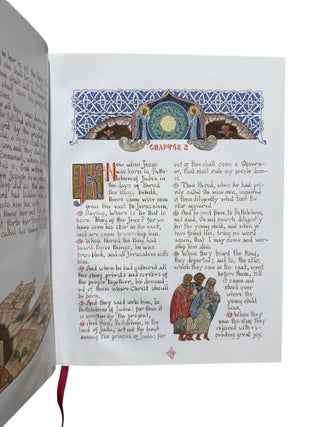 CHAPTER 2
Now when Jesus
was born in Beth-
lehem of Judea in
the days of Herod
the King, behold,
there came wise men
from the east to Jerusalem,
Saying, Where is he that is
born King of the Jews? for we
have seen his star in the east,
and are come to worship him.
When Herod the King had
heard these things, he was
troubled, and all Jerusalem with
him.
And when he had gathered all
the chief priests and scribes of
the people together, he demand-
ed of them where Christ should
be born.
And they said unto him, In
Bethlehem of Judea: for thus it
is written by the prophet,
And thou, Bethlehem, in the
land of Juda, art not the least
among the princes of Juda: for
out of thee shall come a Gover-
nor, that shall rule my people Isra-
el.
Then Herod, when he had pri-
vily called the wise men, inquired
of them diligently what time the
star appeared.
And he sent them to Bethlehem,
and said, Go and search diligently
for the young child; and when
ye have found him, bring me word
again, that I may come and wor-
ship him also.
When they had heard the King,
they departed; and, lo, the star,
which they saw in the east, went
before them,
till it came
and stood over
where the
young child
was.
When they
saw the star, they
rejoiced with ex-
ceeding great joy.